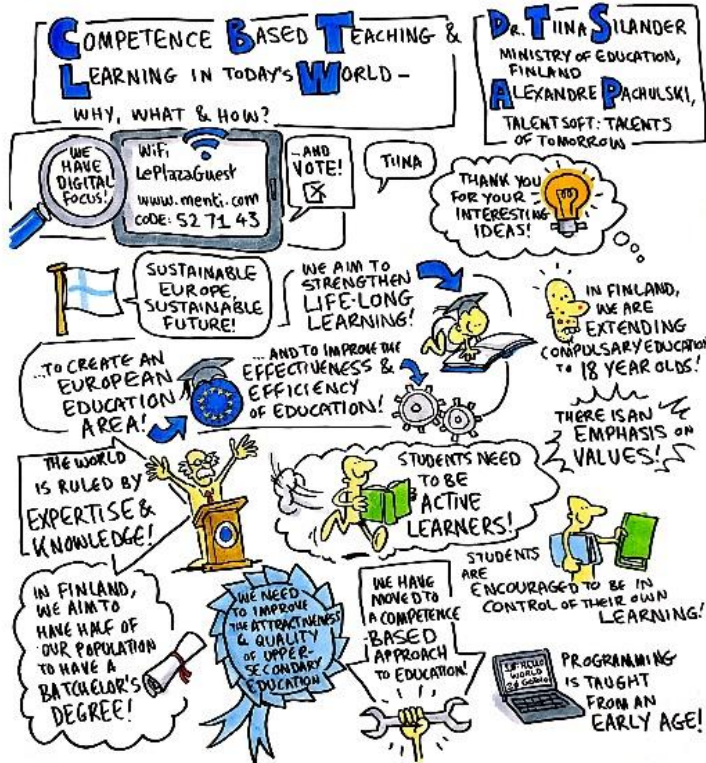 COMPETENCE BASED TEACHING &
LEARNING IN TODAY'S WORLD –
WHY, WHAT & HOW?
DR. TIINA SILANDER
MINISTRY OF EDUCATION,
FINLAND
ALEXANDRE PACHULSKI,
TALENTSOFT: TALENTS
OF TOMORROW
WE
HAVE
DIGITAL
FOCUS!
WiFi
LePlazaGuest
www.menti.com
CODE: 52 71 43
...AND
VOTE!
TIINA
THANK YOU
FOR YOUR
INTERESTING
IDEAS!
SUSTAINABLE
EUROPE,
SUSTAINABLE
FUTURE!
WE AIM TO
STRENGTHEN
LIFE-LONG
LEARNING!
IN FINLAND,
WE ARE
EXTENDING
COMPULSARY EDUCATION
TO 18 YEAR OLDS!
...TO CREATE AN
EUROPEAN
EDUCATION
AREA!
... AND TO IMPROVE THE
EFFECTIVENESS &
EFFICIENCY
OF EDUCATION!
THERE IS AN
EMPHASIS ON
VALUES!
THE WORLD
IS RULED BY
EXPERTISE &
KNOWLEDGE!
STUDENTS NEED
TO BE
ACTIVE
LEARNERS!
STUDENTS
ARE
ENCOURAGED TO BE IN
CONTROL OF THEIR OWN
LEARNING!
IN FINLAND,
WE AIM TO
HAVE HALF OF
OUR POPULATION
TO HAVE A
BATCHELOR'S
DEGREE!
WE NEED
TO IMPROVE
THE ATTRACTINESS
& QUALITY
OF UPPER-
SECONDARY
EDUCATION
WE HAVE
MOVED TO
A COMPETENCE
-BASED
APPROACH
TO EDUCATION!
HELLO
WORLD
PROGRAMMING
IS TAUGHT
FROM AN
EARLY AGE!